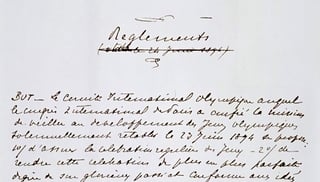 Règlements
BUT — Le Comité International Olympique auquel
le Congrès International de Paris a confié la mission
de veiller au développement des Jeux Olympiques
solennellement rétablis le 23 juin 1894 se propose
1o/ d'assurer la célébration régulière des Jeux — 2o/ de
rendre cette célébration de plus en plus parfaite
digne de son glorieux passé et conforme aux